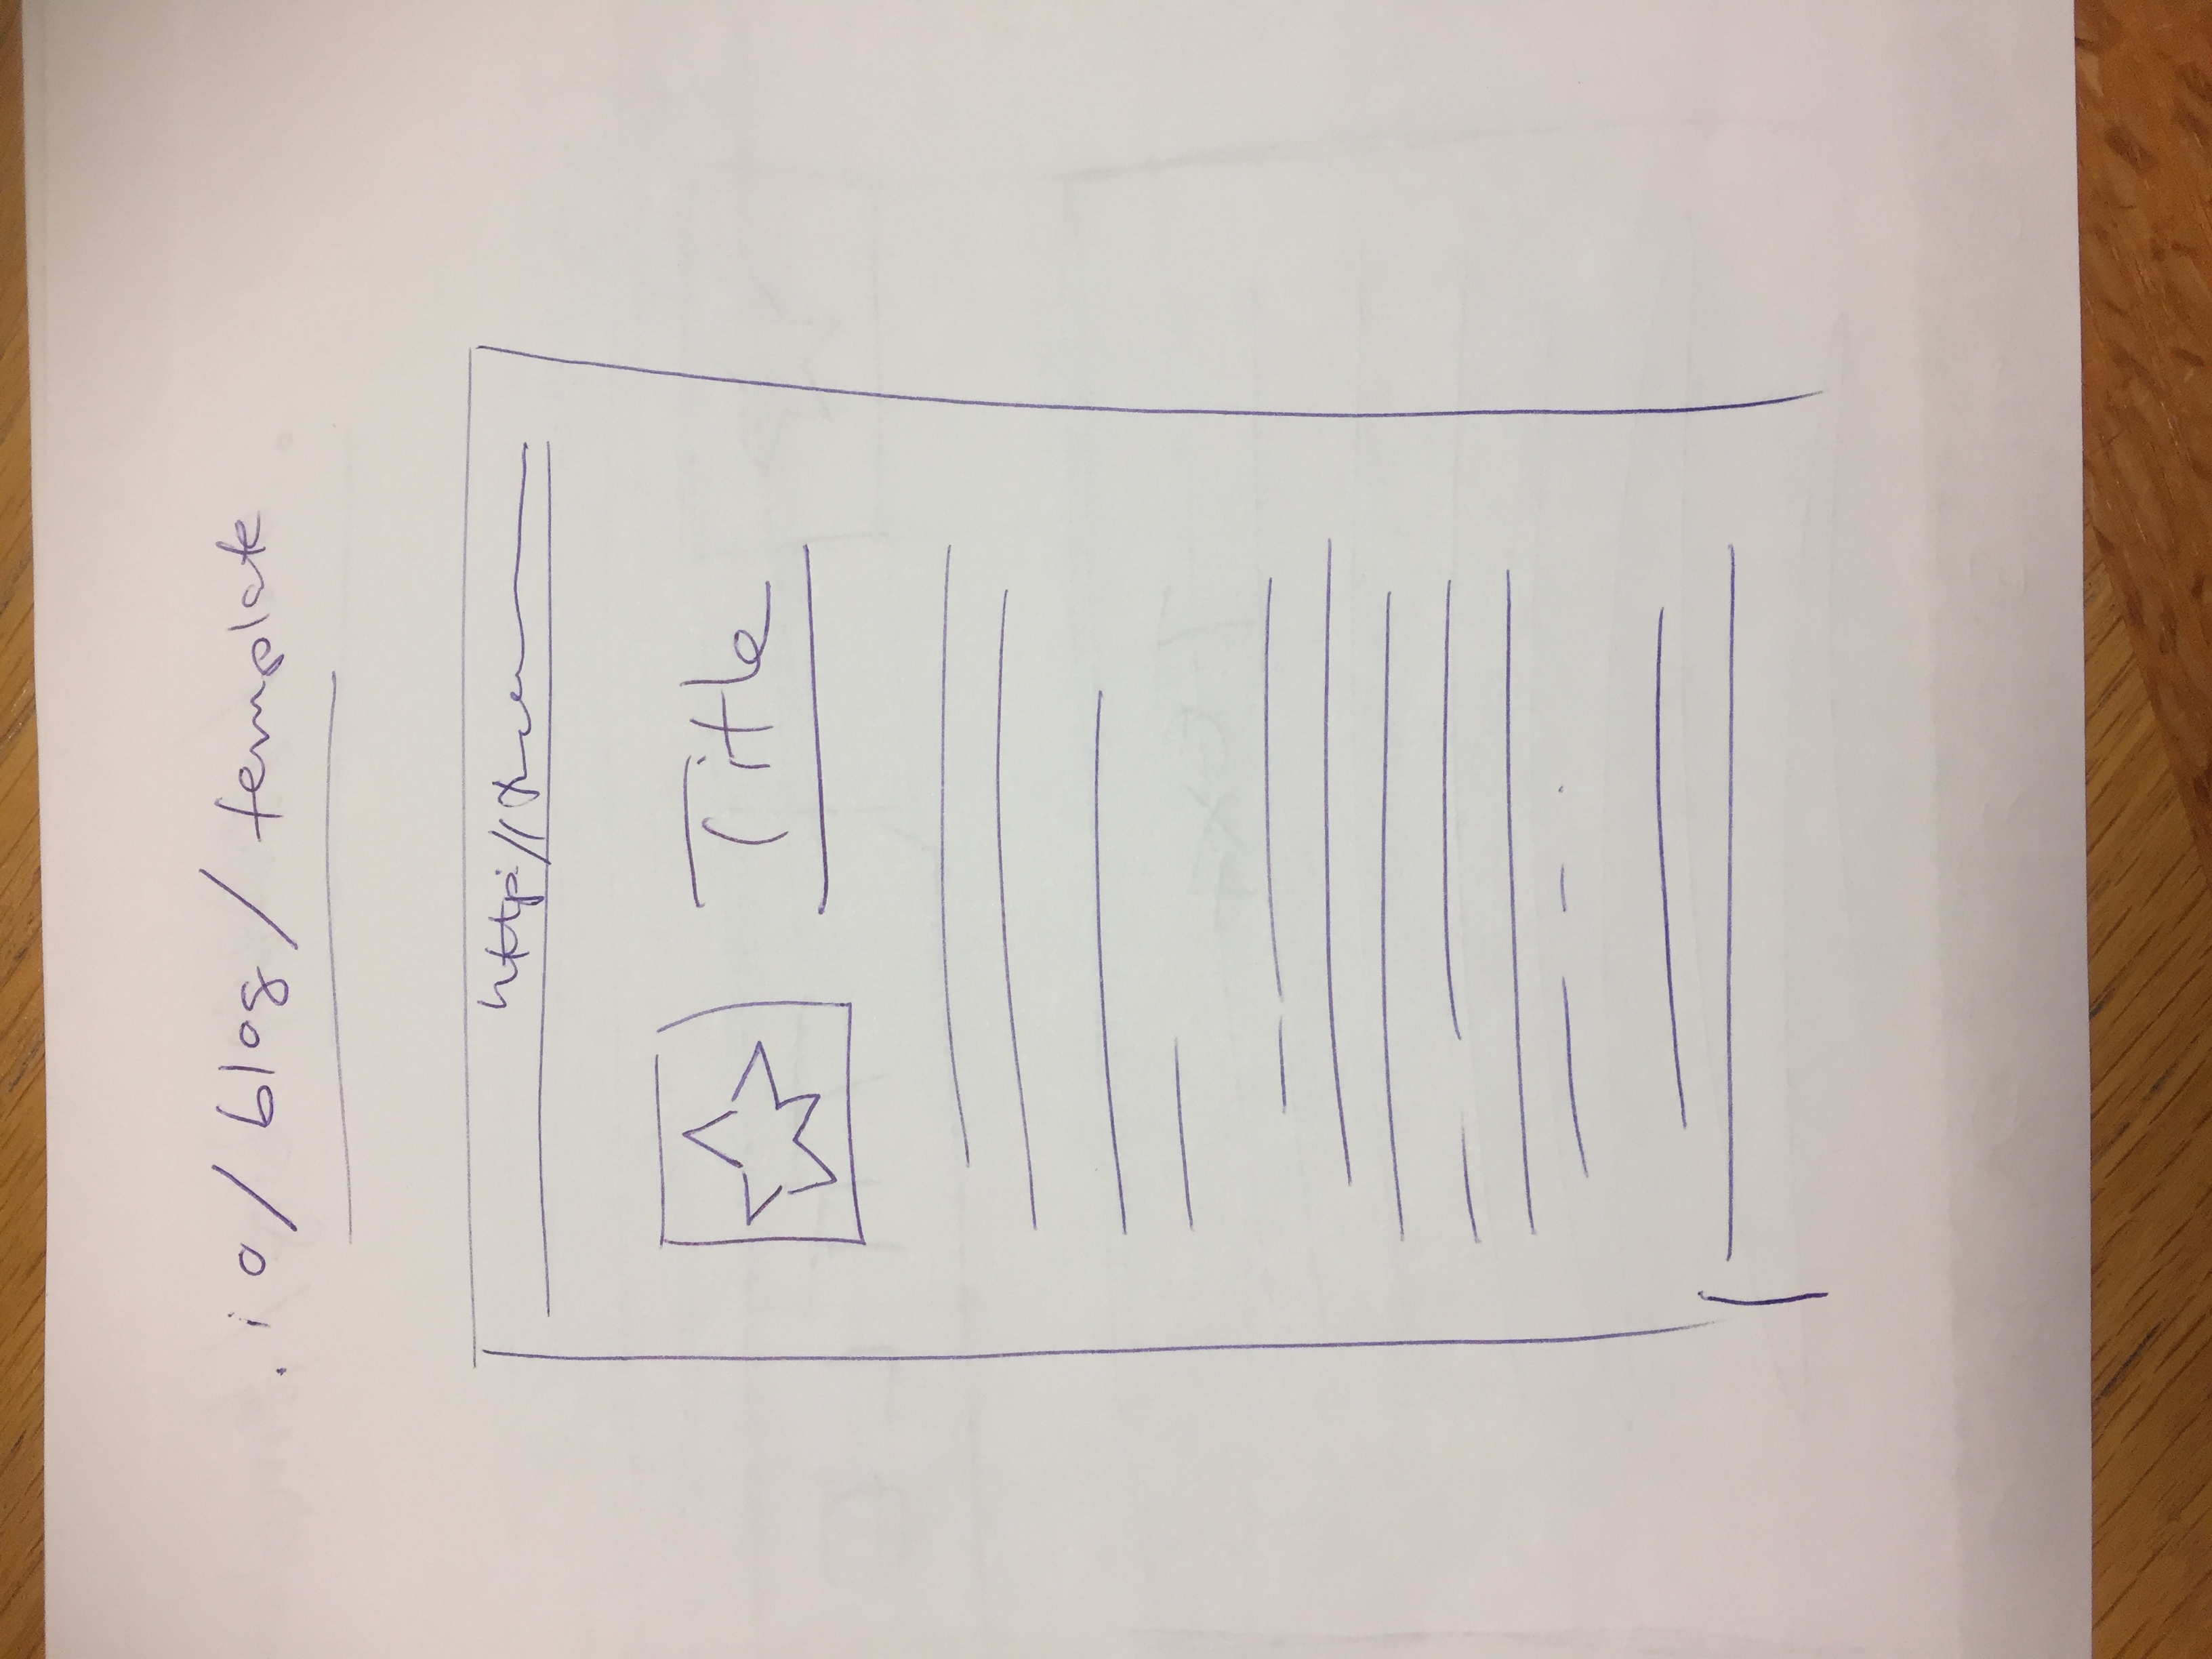 .io/blog/template
http://
Title